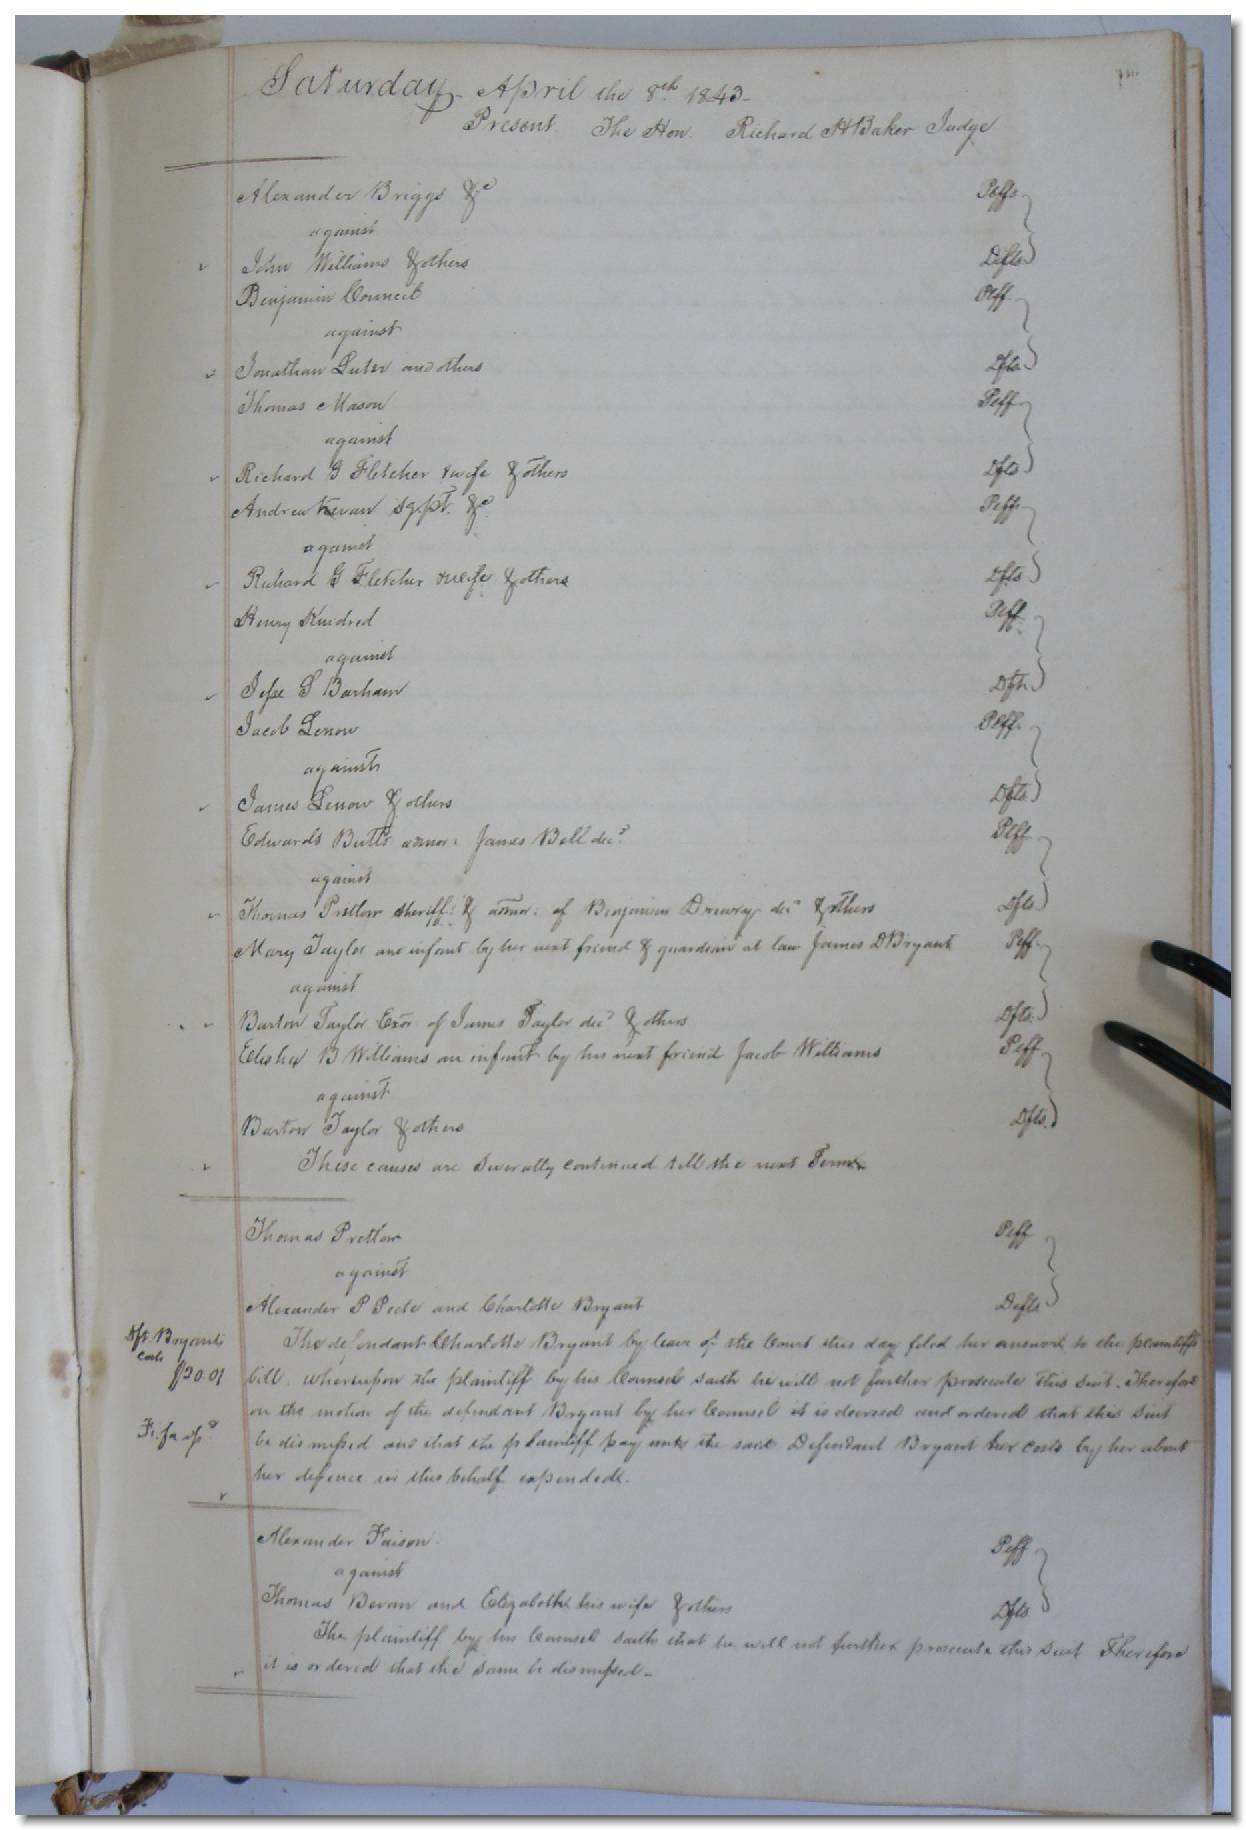 Saturday April the 8th 1843
Present The Hon. Richard H Baker Judge
Alexander Briggs &c Plffs
against
John Williams & others Defts
Benjamin Council Plff
against
Jonathan Luter and others Dfts
Thomas Mason Plff
against
Richard G Fletcher & wife & others Dfts
Andrew Kevan &c Plff
against
Richard G Fletcher & wife & others Dfts
Henry Kindred Plff
against
Jesse S Barham Dft
Jacob Lenow Plff
against
James Lenow & others Dfts
Edwards Butts admor: James Bell decd Plff
against
Thomas Pretlow sheriff & admor: of Benjamin Drewry decd & others Dfts
Mary Taylor an infant by her next friend & guardian at law James D Bryant Plff
against
Barton Taylor Exor of James Taylor decd & others Dfts
Elisha B Williams an infant by his next friend Jacob Williams Plff
against
Barton Taylor & others Dfts.
These causes are severally continued till the next Term
Thomas Pretlow Plff
against
Alexander P Peete and Charlotte Bryant Defts
Dft Bryants
costs
$20.01
The defendant Charlotte Bryant by leave of the Court this day filed her answer to the plaintiffs
bill. whereupon the plaintiff by his Counsel saith he will not further prosecute this suit. Therefore
on the motion of the defendant Bryant by her Counsel it is decreed and ordered that this suit
Fi. fa
be dismissed and that the plaintiff pay unto the said Defendant Bryant her costs by her about
her defence in this behalf expended.
Alexander Faison Plff
against
Thomas Bevan and Elizabeth his wife & others Dfts
The plaintiff by his Counsel saith that he will not further prosecute this suit Therefore
it is ordered that the same be dismissed